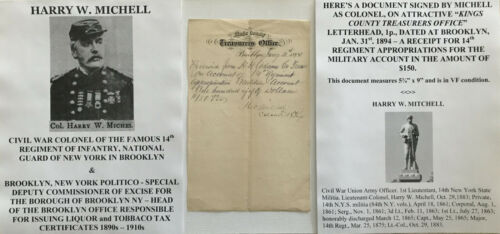 HARRY W. MICHELL
Col. HARRY W. MICHEL
CIVIL WAR COLONEL OF THE FAMOUS 14th
REGIMENT OF INFANTRY, NATIONAL
GUARD OF NEW YORK IN BROOKLYN
&
BROOKLYN, NEW YORK POLITICO - SPECIAL
DEPUTY COMMISSIONER OF EXCISE FOR
THE BOROUGH OF BROOKLYN NY – HEAD
OF THE BROOKLYN OFFICE RESPONSIBLE
FOR ISSUING LIQUOR and TOBBACO TAX
CERTIFICATES 1890s – 1910s
Kings County
Treasurer's Office
Brooklyn
Received from
on Account of 14 Regiment
Appropriation Military Account
One hundred fifty Dollars
HERE'S A DOCUMENT SIGNED BY MICHELL
AS COLONEL, ON ATTRACTIVE "KINGS
COUNTY TREASURERS OFFICE"
LETTERHEAD, 1p., DATED AT BROOKLYN,
JAN. 31st. 1894 – A RECEIPT FOR 14th
REGIMENT APPROPRIATIONS FOR THE
MILITARY ACCOUNT IN THE AMOUNT OF
$150.
This document measures 5¾" x 9" and is in VF condition.
<<>>
HARRY W. MITCHELL
Civil War Union Army Officer. 1st Lieutentant, 14th New York State
Militia. Lieutenant-Colonel, Harry W. Michell, Oct. 29, 1881; Private,
14th N.Y.S. militia (84th N.Y. vols.), April 18, 1861; Corporal, Aug. 1,
1861; Serg., Nov. 1, 1861; 2d Lt., Feb. 11, 1863; 1st Lt., July 27, 1863;
honorably discharged March 12, 1865; Capt., May 25, 1865; Major,
14th Regt., Mar. 25, 1875; Lt.-Col., Oct. 29, 1881.